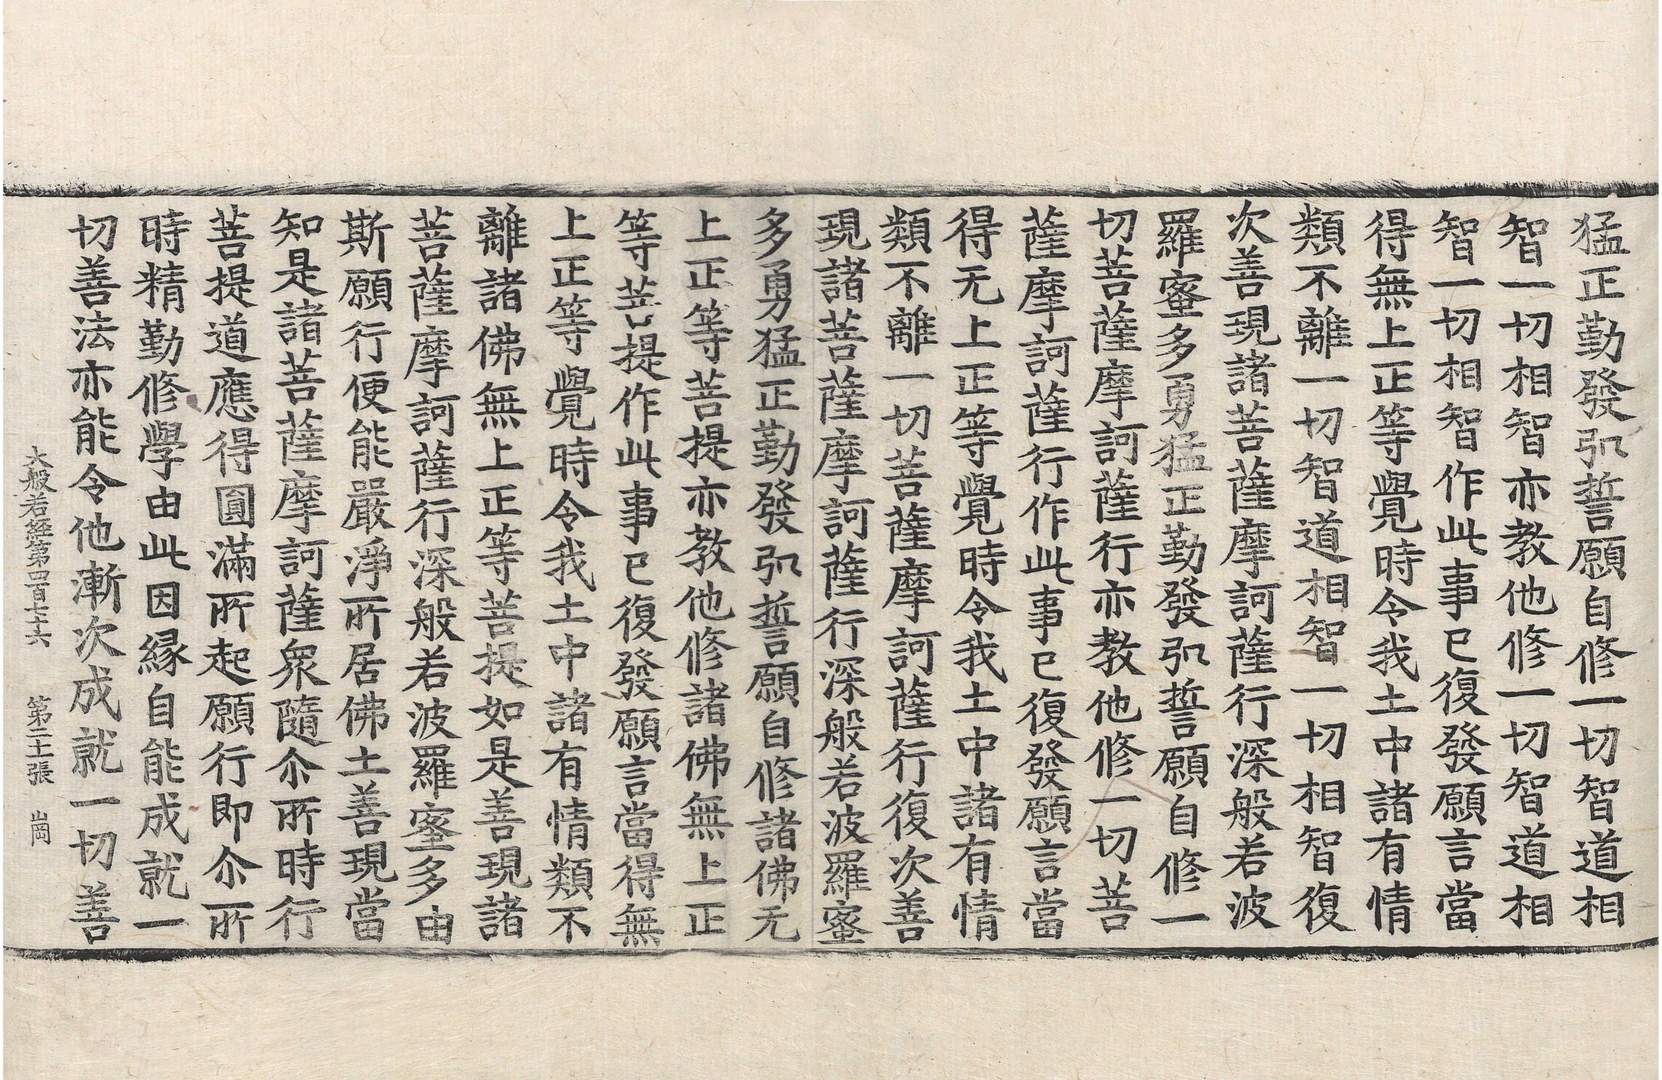 猛正勤發弘誓願自修一切智道相
智一切相智亦教他修一切智道相
智一切相智作此事已復發願言當
得無上正等覺時令我土中諸有情
類不離一切智道相智一切相智復
次善現諸菩薩摩訶薩行深般若波
羅蜜多勇猛正勤發弘誓願自修一
切菩薩摩訶薩行亦教他修一切菩
薩摩訶薩行作此事已復發願言當
得无上正等覺時令我土中諸有情
類不離一切菩薩摩訶薩行復次善
現諸菩薩摩訶薩行深般若波羅蜜
多勇猛正勤發弘誓願自修諸佛无
上正等菩提亦教他修諸佛無上正
等菩提作此事已復發願言當得無
上正等覺時令我土中諸有情類不
離諸佛無上正等菩提如是善現諸
菩薩摩訶薩行深般若波羅蜜多由
斯願行便能嚴淨所居佛土善現當
知是諸菩薩摩訶薩衆隨尒所時行
菩提道應得圓滿所起願行即尒所
時精勤修學由此因緣自能成就一
切善法亦能令他漸次成就一切善
大般若經第四百七十六 第二十張 崗